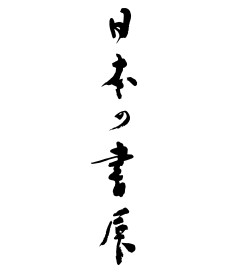 日本の書展